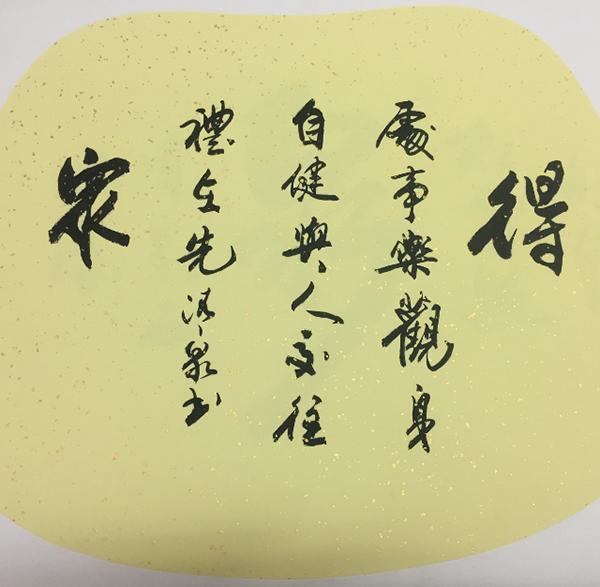 得
處事樂觀身
自健與人交往
禮在先清泉書
眾